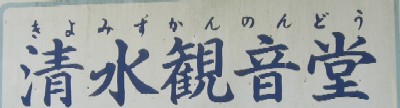 きよみずかんのんどう
清水観音堂